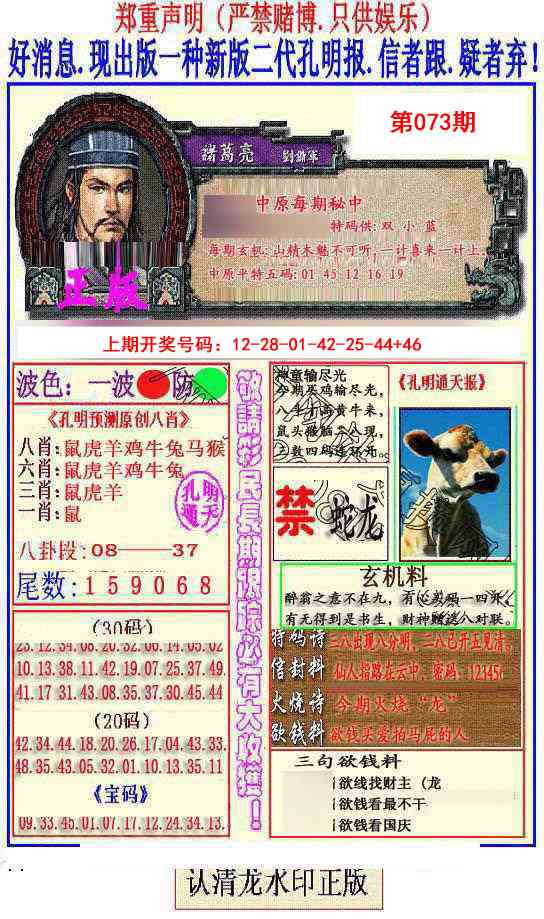 郑重声明（严禁赌博.只供娱乐）
好消息.现出版一种新版二代孔明报.信者跟.疑者弃！
第073期
諸葛亮 劉謝軍
中原每期秘中
特码供:双 小 蓝
每期玄机:山精木魅不可听,一计喜来一计上.
中原平特五码:01 45 12 16 19
正版
上期开奖号码：12-28-01-42-25-44+46
波色：一波 防
《孔明预测原创八肖》
八肖:鼠虎羊鸡牛兔马猴
六肖:鼠虎羊鸡牛兔
三肖:鼠虎羊
一肖:鼠
孔明
通天
八卦段:08——37
尾数:159068
(30码)
23.12.34.08.20.32.06.14.05.02
10.13.38.11.42.19.07.25.37.49.
41.17.31.43.08.35.37.30.45.44
(20码)
42.34.44.18.20.26.17.04.43.33.
48.35.43.05.32.01.10.13.35.11
《宝码》
09.33.45.01.07.17.12.24.34.13.
敬請彩民長期跟踪必有大收獲！
神童输尽光
今期买鸡输尽光，
《孔明通天报》
禁 蛇龙
玄机料
醉翁之意不在九，
有无得到是书生，财神赠送八对联。
特码诗 三八出现八分明，二八已开五见清。
信封料 仙人指路在云中，密码：12345
火烧诗 今期火烧“龙”
欲钱料 欲钱买爱拍马屁的人
三句欲钱料
欲线找财主（龙
欲钱看最不干
欲钱看国庆
认清龙水印正版